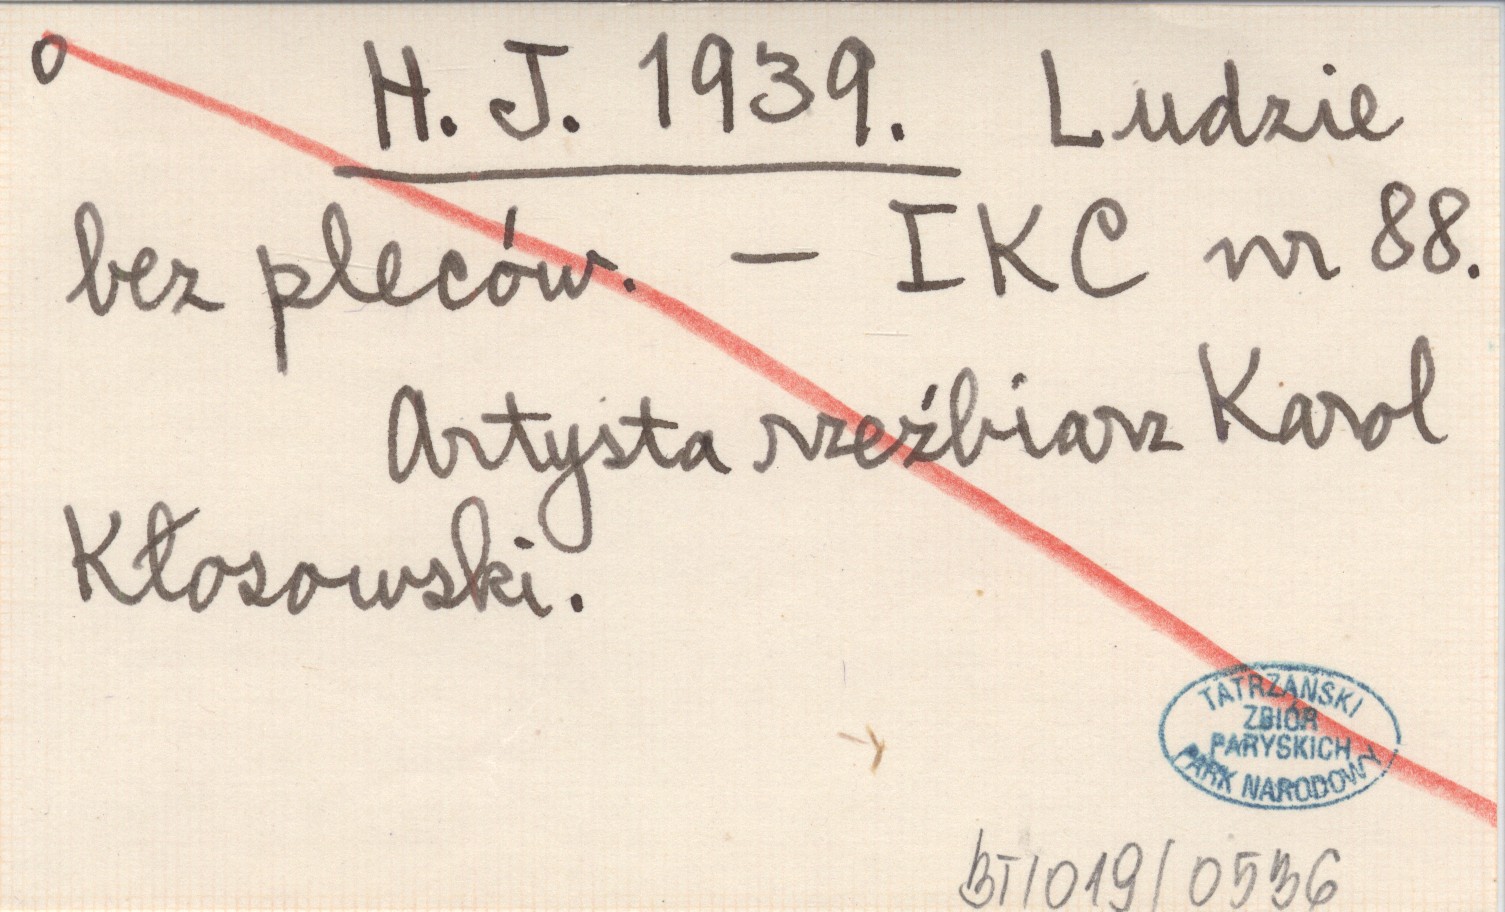 o H. J. 1939. Ludzie
bez pleców. — IKC nr 88.
Artysta rzeźbiarz Karol
Kłosowski.
TATRZAŃSKI
ZBIÓR
PARYSKICH
PARK NARODOWY
BT/019/0536